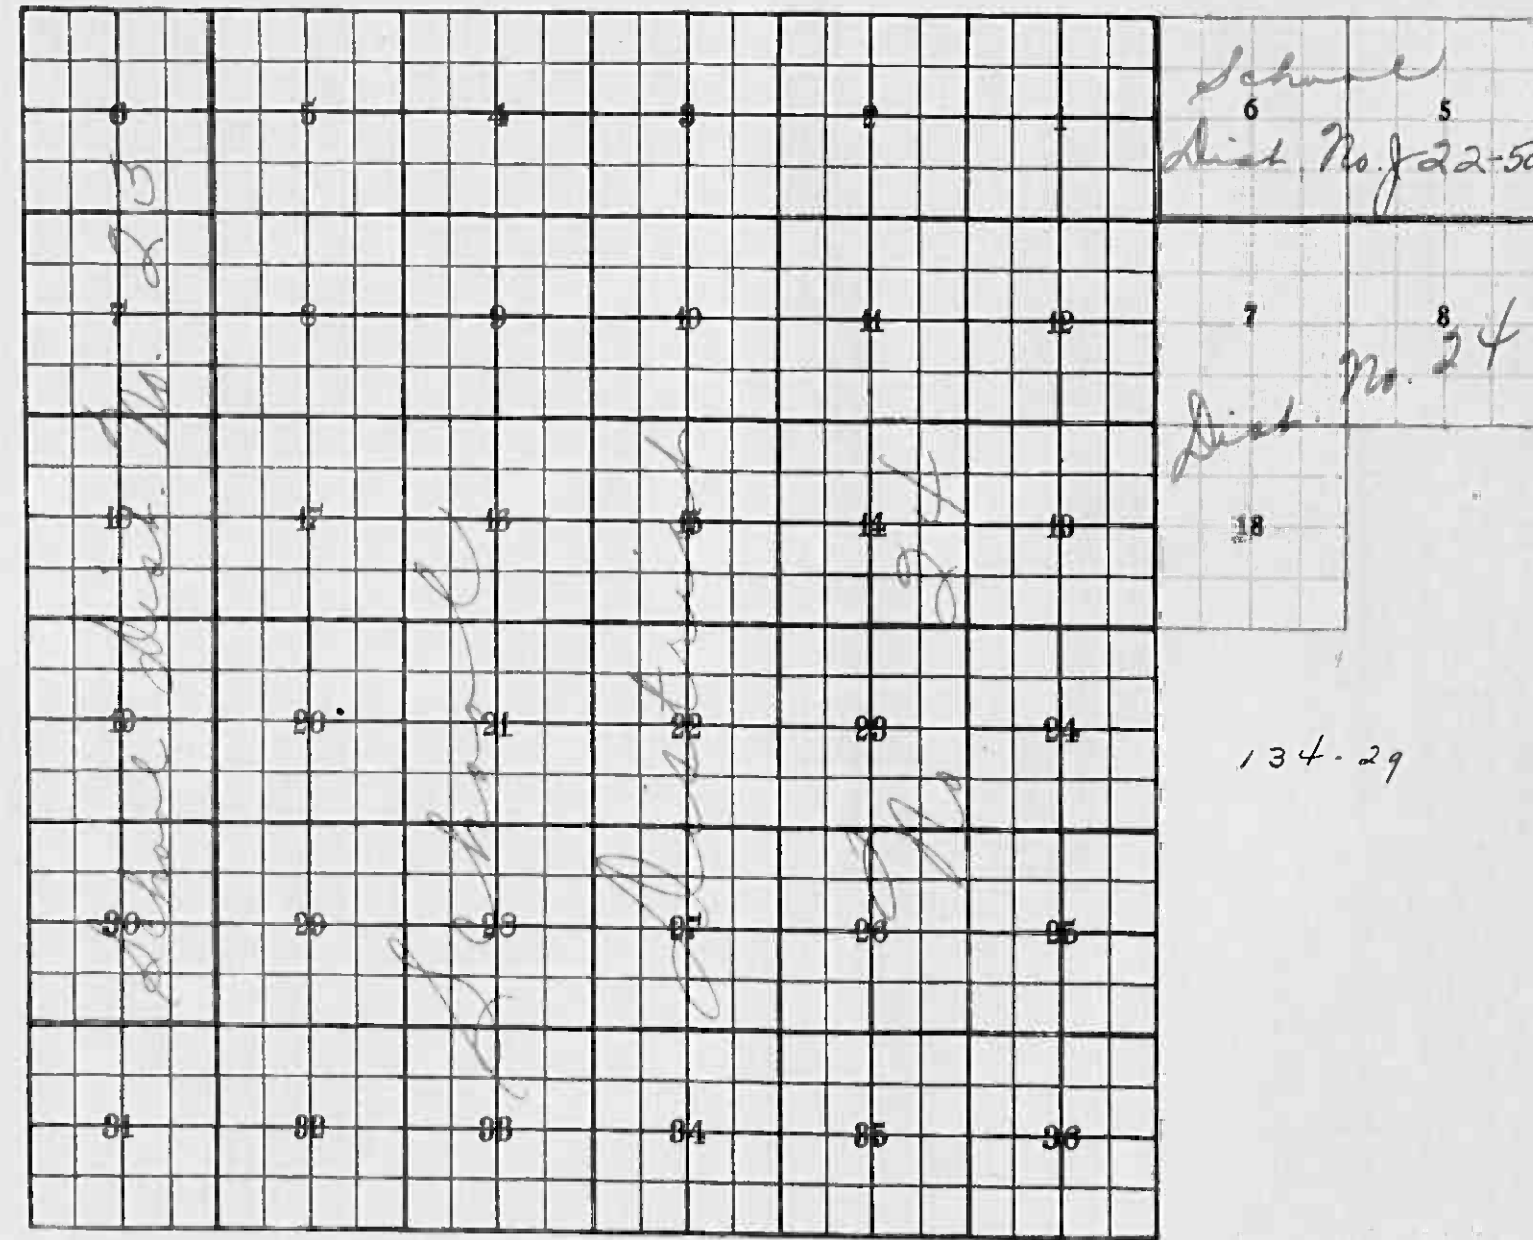 6 5 4 3 2 1
7 8 9 10 11 12
18 17 16 15 14 13
19 20 21 22 23 24
30 29 28 27 26 25
31 32 33 34 35 36
School Dist. No. 23
School
District
J No 24
School
6 5
Dist. No. J 22-50
7 8
Dist. No. 24
18
134-29